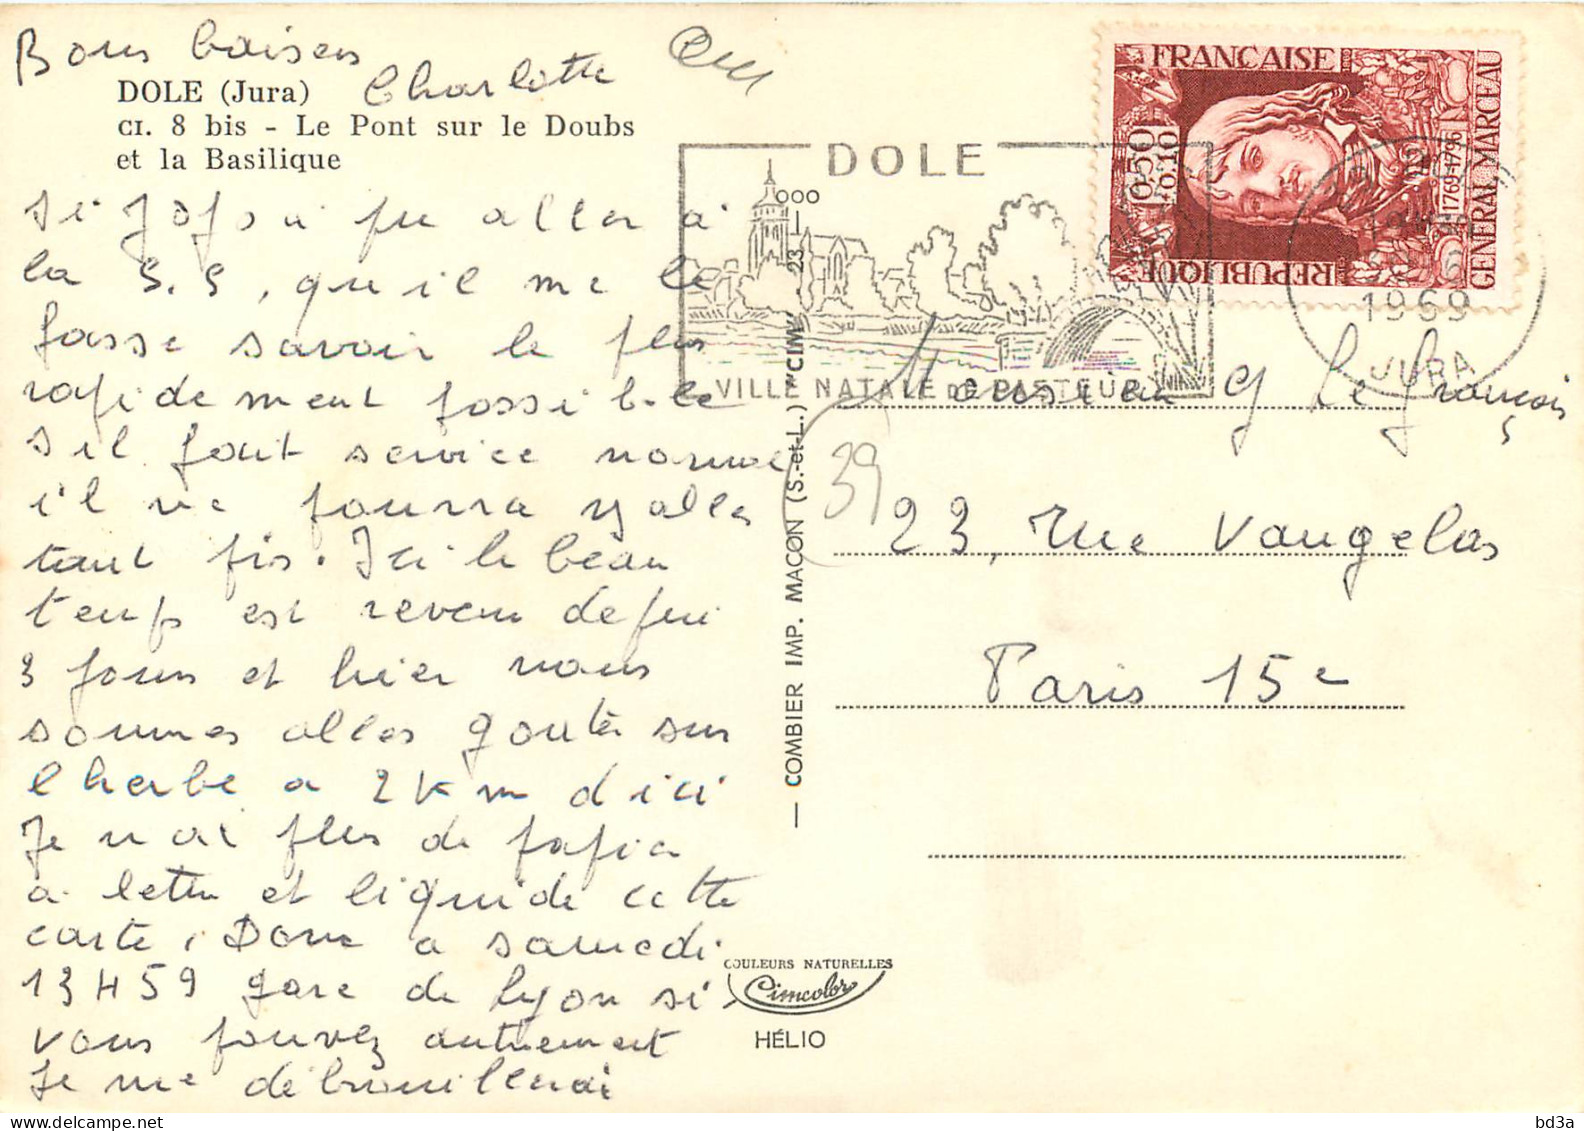 Bons baisers
Charlotte
DOLE (Jura)
CI. 8 bis - Le Pont sur le Doubs
et la Basilique
si Jojo a pu aller a
la S.S, qu il me le
fasse savoir le plus
rapidement possible
s il fait service
il ne pourra y aller
tant pis. Ici le beau
temps est revenu depui
3 jours et hier nous
sommes alles gouter sur
l herbe a 2 km d ici
Je n ai plus de papier
a lettre et liquide cette
carte. Donc a samedi
13H59 gare de Lyon si
vous pouvez autrement
Je me débrouillerai
— COMBIER IMP. MACON (S.-et-L.) "CIM" - 23 -
COULEURS NATURELLES
Cimcolor
HÉLIO
DOLE
VILLE NATALE DE PASTEUR
REPUBLIQUE FRANÇAISE
0,50
0,10
1769-1796
GÉNÉRAL MARCEAU
1969
JURA
Monsieur G Le François
39
23, rue Vaugelas
Paris 15e
bd3a